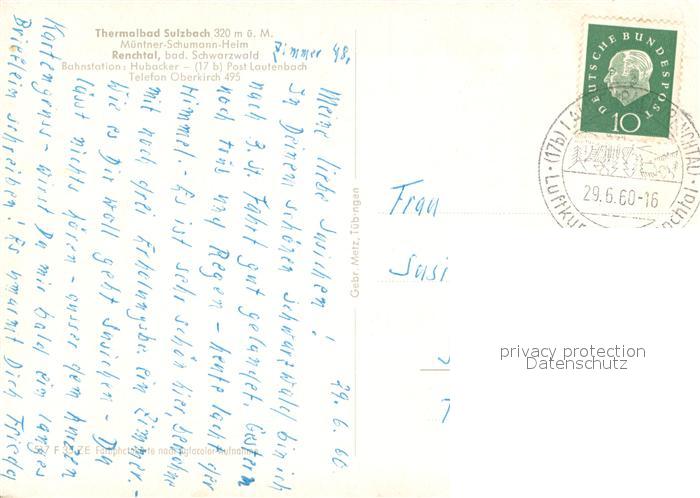 Thermalbad Sulzbach 320 m ü. M.
Müntner-Schumann-Heim
Renchtal, bad. Schwarzwald
Bahnstation: Hubacker – (17 b) Post Lautenbach
Telefon Oberkirch 495
Zimmer 48.
29.6.60.
Meine liebe Susichen!
In Deinem schönen Schwarzwald bin ich
nach 3 St. Fahrt gut gelandet. Gestern
noch trüb Regen – heute lacht der
Himmel. – Es ist sehr schön hier, bewohne
mit noch drei ein Zimmer. –
Wie es Dir woll geht Susichen – Du
lässt nichts hören – ausser dem kurzen
Kartengruss – wirst Du mir bald ein langes
Brieflein schreiben! Es umarmt Dich Frieda
F
Gebr. Metz, Tübingen
Frau
Susi
DEUTSCHE BUNDESPOST
10
(17b)
29.6.60-16
Luftkur
privacy protection
Datenschutz